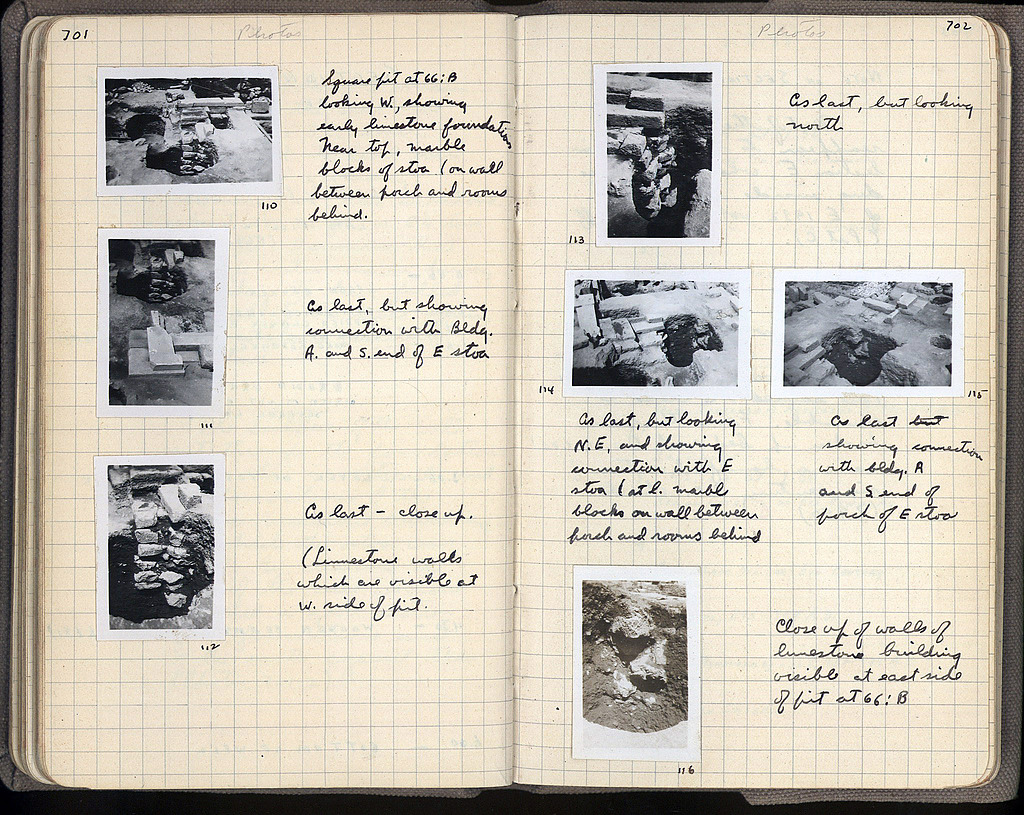 701
Photos
Square pit at 66:B
looking W., showing
early limestone foundation
Near top, marble
blocks of stoa (on wall
between porch and rooms
behind.
110
As last, but showing
connection with Bldg.
A. and S. end of E stoa
111
As last – close up.
(Limestone walls
which are visible at
W. side of pit.
112
702
Photos
As last, but looking
north
113
114
115
As last, but looking
N.E, and showing
connection with E
stoa (at l. marble
blocks on wall between
porch and rooms behind
As last but
showing connection
with bldg. A
and S. end of
porch of E stoa
Close up of walls of
limestone building
visible at east side
of pit at 66:B
116